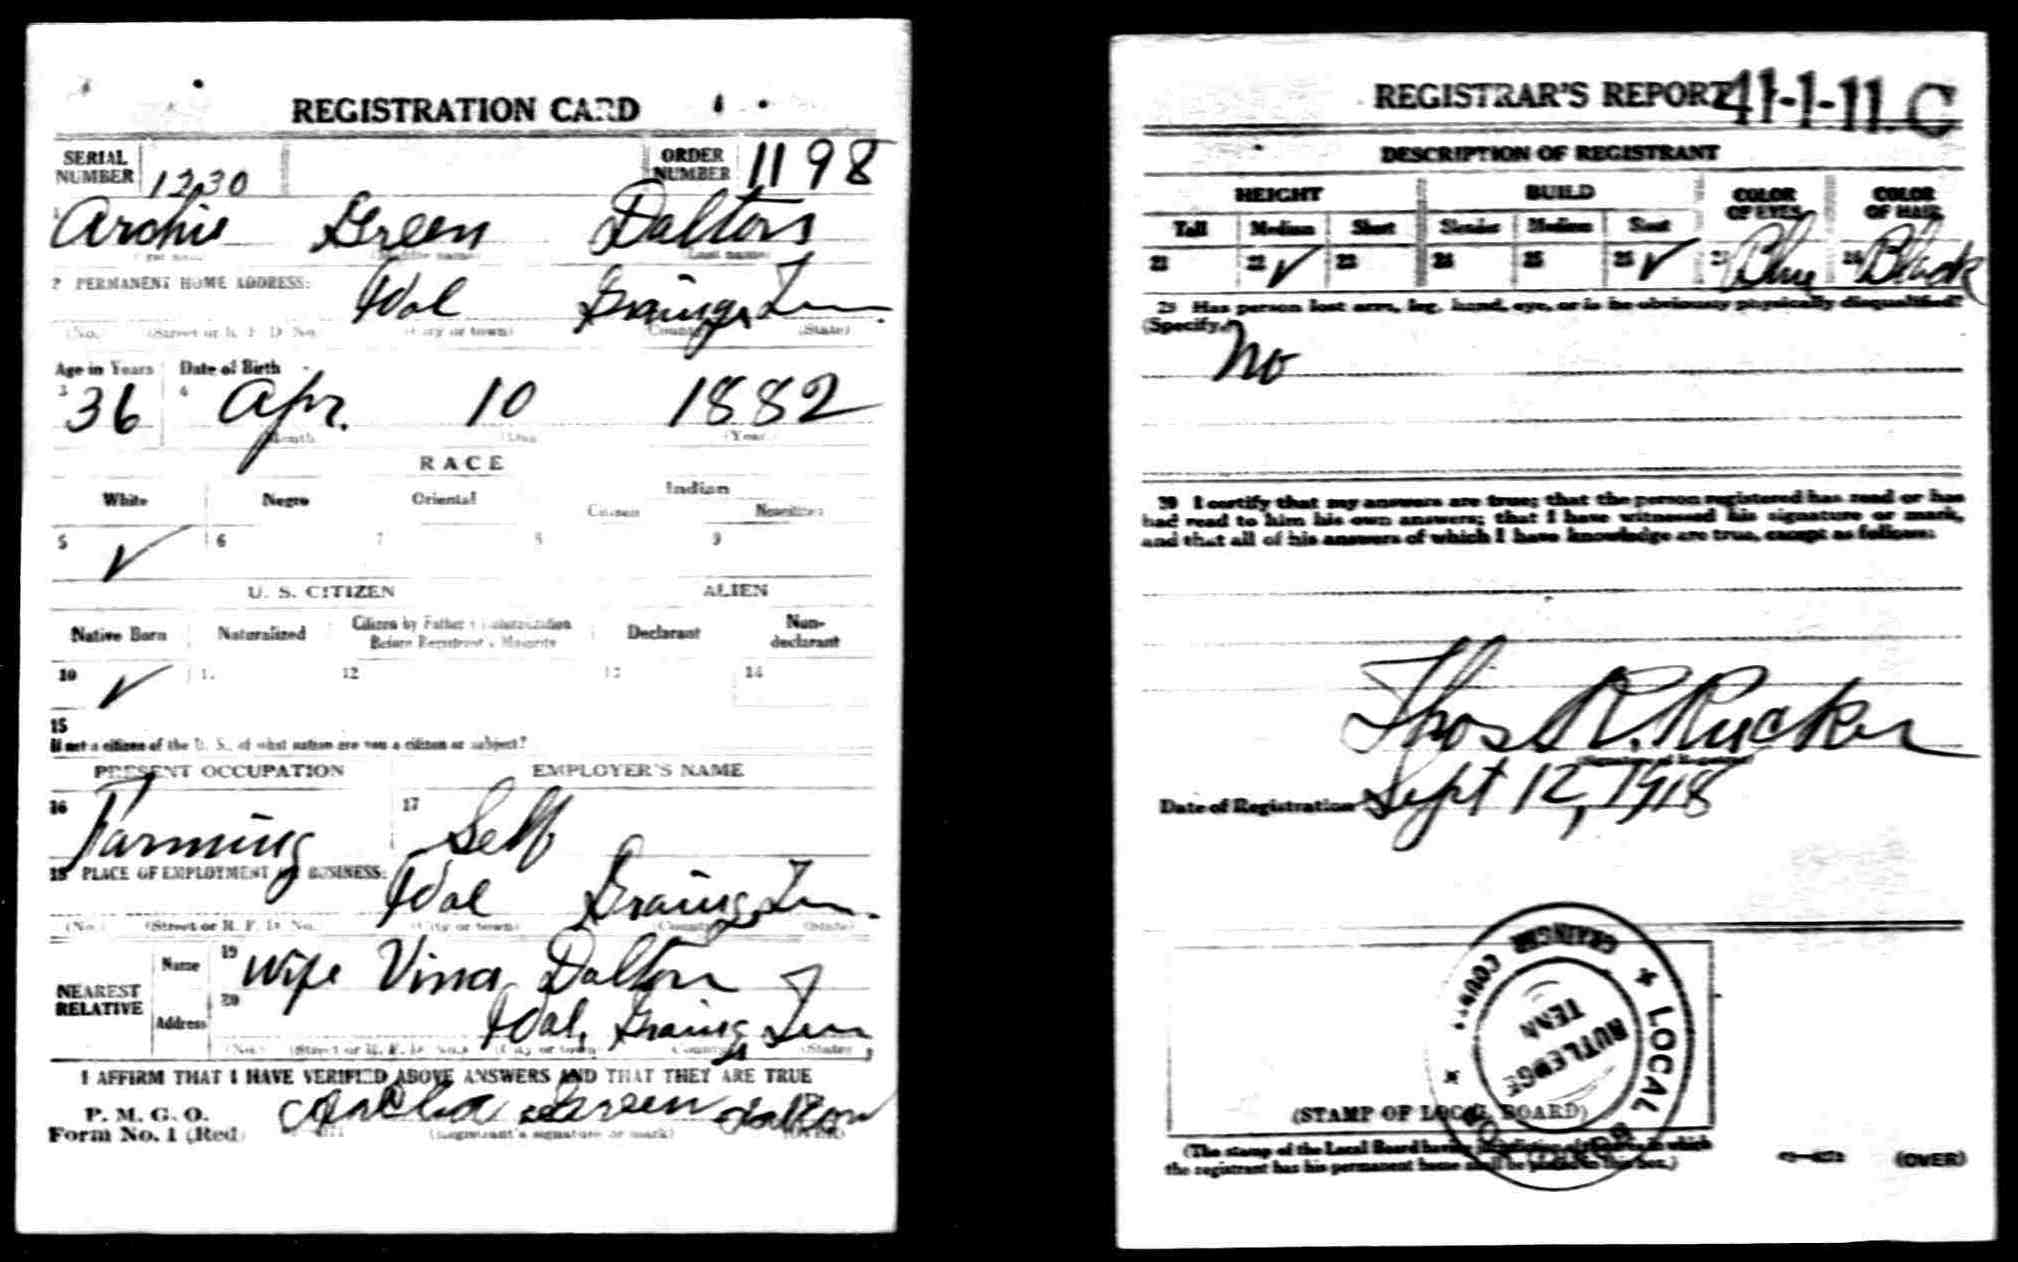 REGISTRATION CARD
SERIAL NUMBER 1230 ORDER NUMBER 1198
1 Archie Green Dalton
(First name) (Middle name) (Last name)
2 PERMANENT HOME ADDRESS: Idol Grainger Tenn.
(No.) (Street or R. F. D. No.) (City or town) (County) (State)
Age in Years Date of Birth
3 36 4 Apr. 10 1882
(Month) (Day) (Year)
RACE
White Negro Oriental Indian
Citizen Noncitizen
5 ✓ 6 7 8 9
U. S. CITIZEN ALIEN
Native Born Naturalized Citizen by Father's Naturalization Before Registrant's Majority Declarant Non-declarant
10 ✓ 11 12 13 14
15
If not a citizen of the U. S., of what nation are you a citizen or subject?
PRESENT OCCUPATION EMPLOYER'S NAME
16 Farming 17 Self
18 PLACE OF EMPLOYMENT OR BUSINESS: Idol Grainger Tenn.
(No.) (Street or R. F. D. No.) (City or town) (County) (State)
NEAREST RELATIVE
Name 19 Wife Vina Dalton
Address 20 Idol, Grainger Tenn
(No.) (Street or R. F. D. No.) (City or town) (County) (State)
I AFFIRM THAT I HAVE VERIFIED ABOVE ANSWERS AND THAT THEY ARE TRUE
P. M. G. O.
Form No. 1 (Red) Green Dalton
(Registrant's signature or mark) (OVER)
REGISTRAR'S REPORT 41-1-11. C
DESCRIPTION OF REGISTRANT
HEIGHT BUILD COLOR OF EYES COLOR OF HAIR
Tall Medium Short Slender Medium Stout
21 22 ✓ 23 24 25 26 ✓ 27 Blue 28 Black
29 Has person lost arm, leg, hand, eye, or is he obviously physically disqualified?
(Specify.) No
30 I certify that my answers are true; that the person registered has read or has
had read to him his own answers; that I have witnessed his signature or mark,
and that all of his answers of which I have knowledge are true, except as follows:
Thos R. Rucker
(Signature of Registrar)
Date of Registration Sept 12, 1918
LOCAL BOARD FOR GRAINGER COUNTY
RUTLEDGE
TENN
(STAMP OF LOCAL BOARD)
(The stamp of the Local Board having jurisdiction of the area in which
the registrant has his permanent home shall be placed in this box.)
(OVER)